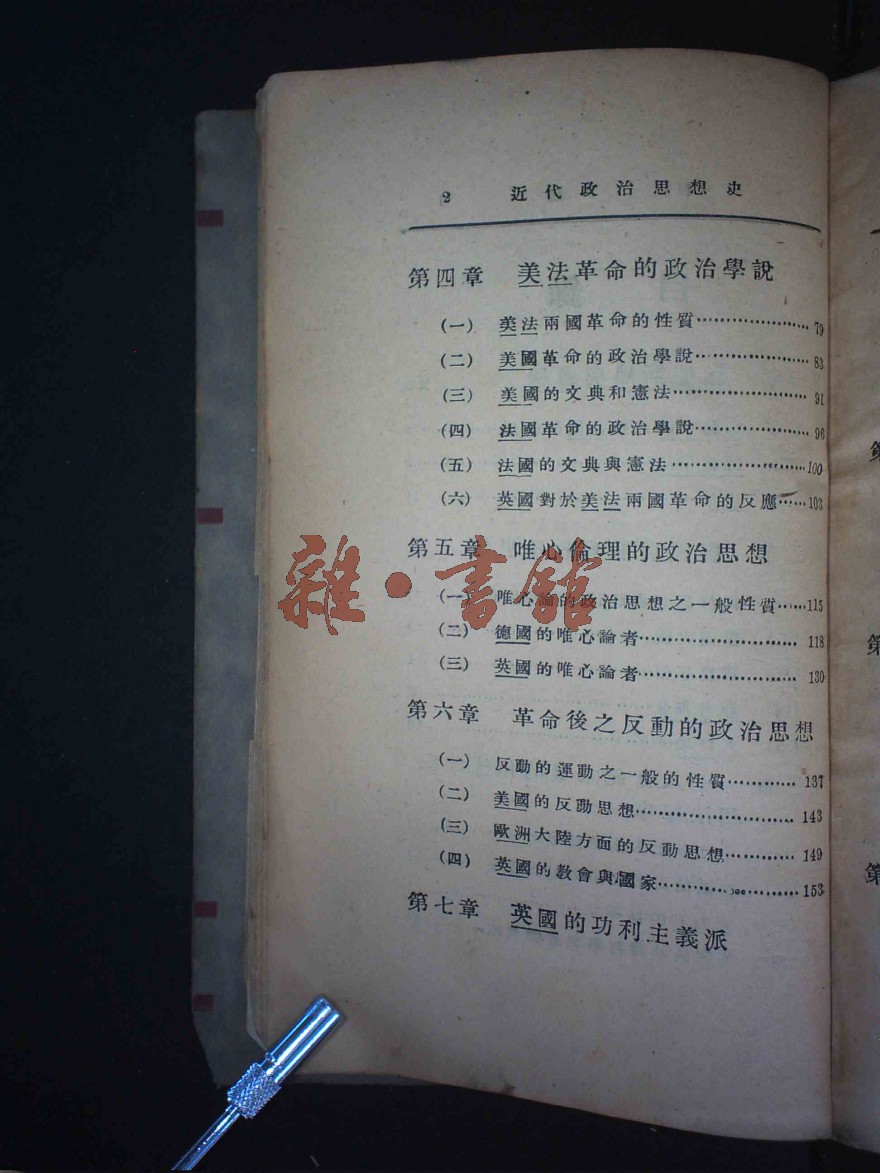 2 近代政治思想史
第四章 美法革命的政治學說
(一) 美法兩國革命的性質…………………79
(二) 美國革命的政治學說…………………83
(三) 美國的文典和憲法…………………91
(四) 法國革命的政治學說…………………96
(五) 法國的文典與憲法…………………100
(六) 英國對於美法兩國革命的反應……103
第五章 唯心倫理的政治思想
(一) 唯心論的政治思想之一般性質……115
(二) 德國的唯心論者…………………118
(三) 英國的唯心論者…………………130
第六章 革命後之反動的政治思想
(一) 反動的運動之一般的性質…………137
(二) 美國的反動思想…………………143
(三) 歐洲大陸方面的反動思想…………149
(四) 英國的教會與國家…………………153
第七章 英國的功利主義派
雜·書館